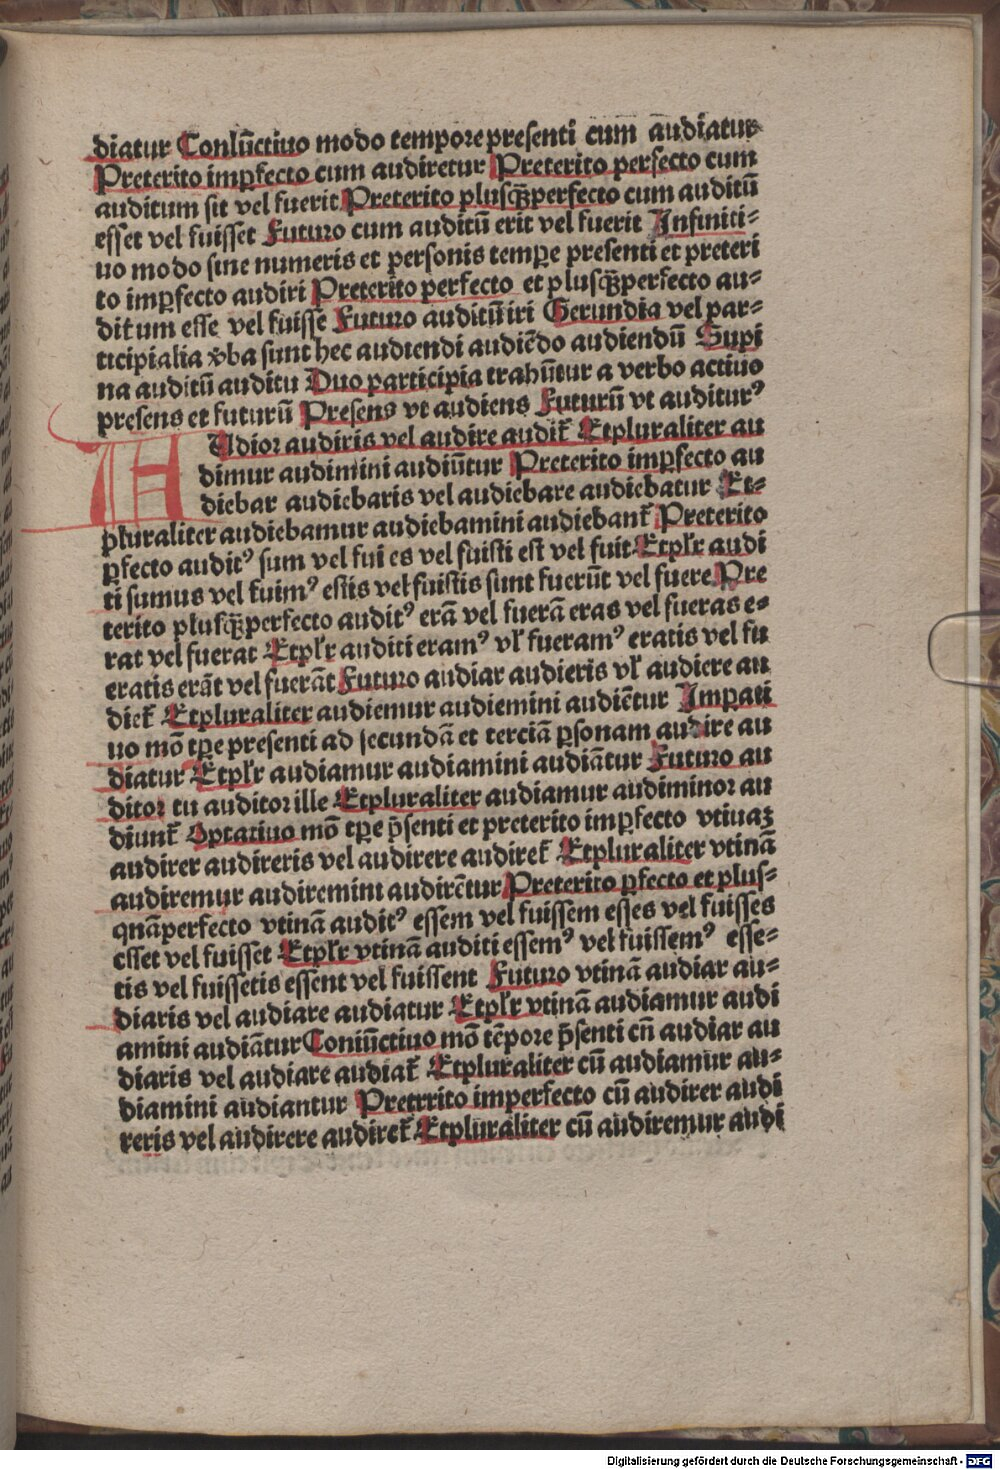 diatur Coniūctiuo modo tempore presenti cum audiatur
Preterito imꝑfecto cum audiretur Preterito perfecto cum
auditum sit vel fuerit Preterito plusqꝫperfecto cum auditū
esset vel fuisset Futuro cum auditū erit vel fuerit Infiniti⸗
uo modo sine numeris et personis tempe presenti et preteri
to imꝑfecto audiri Preterito perfecto et plusqꝫperfecto au⸗
ditum esse vel fuisse Futuro auditū iri Gerundia vel par⸗
ticipialia v̓ba sunt hec audiendi audiēdo audiendū Supi
na auditū auditu Duo participia trahūtur a verbo actiuo
presens et futurū Presens vt audiens Futurū vt auditurꝰ
A Udior audiris vel audire audit̃ Et pluraliter au
dimur audimini audiūtur Preterito imꝑfecto au
diebar audiebaris vel audiebare audiebatur Et⸗
pluraliter audiebamur audiebamini audiebant̃ Preterito
ꝑfecto auditꝰ sum vel fui es vel fuisti est vel fuit Et plr̃ audi
ti sumus vel fuimꝰ estis vel fuistis sunt fuerūt vel fuere Pre
terito plusqꝫperfecto auditꝰ erā vel fuerā eras vel fueras e⸗
rat vel fuerat Et plr̃ auditi eramꝰ vl̓ fueramꝰ eratis vel fu
eratis erāt vel fuerāt Futuro audiar audieris vl̓ audiere au
diet̃ Et pluraliter audiemur audiemini audiētur Impati
uo mō tꝑe presenti ad secundā et terciā ꝑsonam audire au
diatur Et plr̃ audiamur audiamini audiātur Futuro au
ditor tu auditor ille Et pluraliter audiamur audiminor au
diunt̃ Optatiuo mō tꝑe p̄senti et preterito imꝑfecto vtinaꝫ
audirer audireris vel audirere audiret̃ Et pluraliter vtinā
audiremur audiremini audirētur Preterito ꝑfecto et plus⸗
qnāperfecto vtinā auditꝰ essem vel fuissem esses vel fuisses
esset vel fuisset Et plr̃ vtinā auditi essemꝰ vel fuissemꝰ esse⸗
tis vel fuissetis essent vel fuissent Futuro vtinā audiar au⸗
diaris vel audiare audiatur Et plr̃ vtinā audiamur audi
amini audiātur Coniūctiuo mō tēpore p̄senti cū audiar au
diaris vel audiare audiat̃ Et pluraliter cū audiamur au⸗
diamini audiantur Pretrrito imperfecto cū audirer audi
reris vel audirere audiret̃ Et pluraliter cū audiremur audi
Digitalisierung gefördert durch die Deutsche Forschungsgemeinschaft - DFG